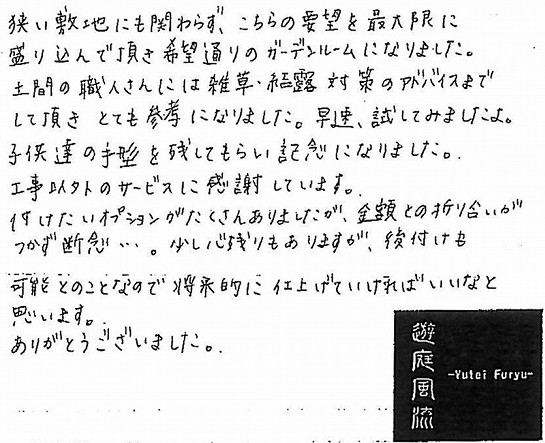 狭い敷地にも関わらず、こちらの要望を最大限に
盛り込んで頂き希望通りのガーデンルームになりました。
土間の職人さんには雑草・結露対策のアドバイスまで
して頂きとても参考になりました。早速、試してみましたよ。
子供達の手型を残してもらい記念になりました。
工事以外のサービスに感謝しています。
付けたいオプションがたくさんありましたが、金額との折り合いが
つかず断念…。少し心残りもありますが、後付けも
可能とのことなので将来的に仕上げていければいいなと
思います。
ありがとうございました。
遊庭風流
-Yutei Furyu-